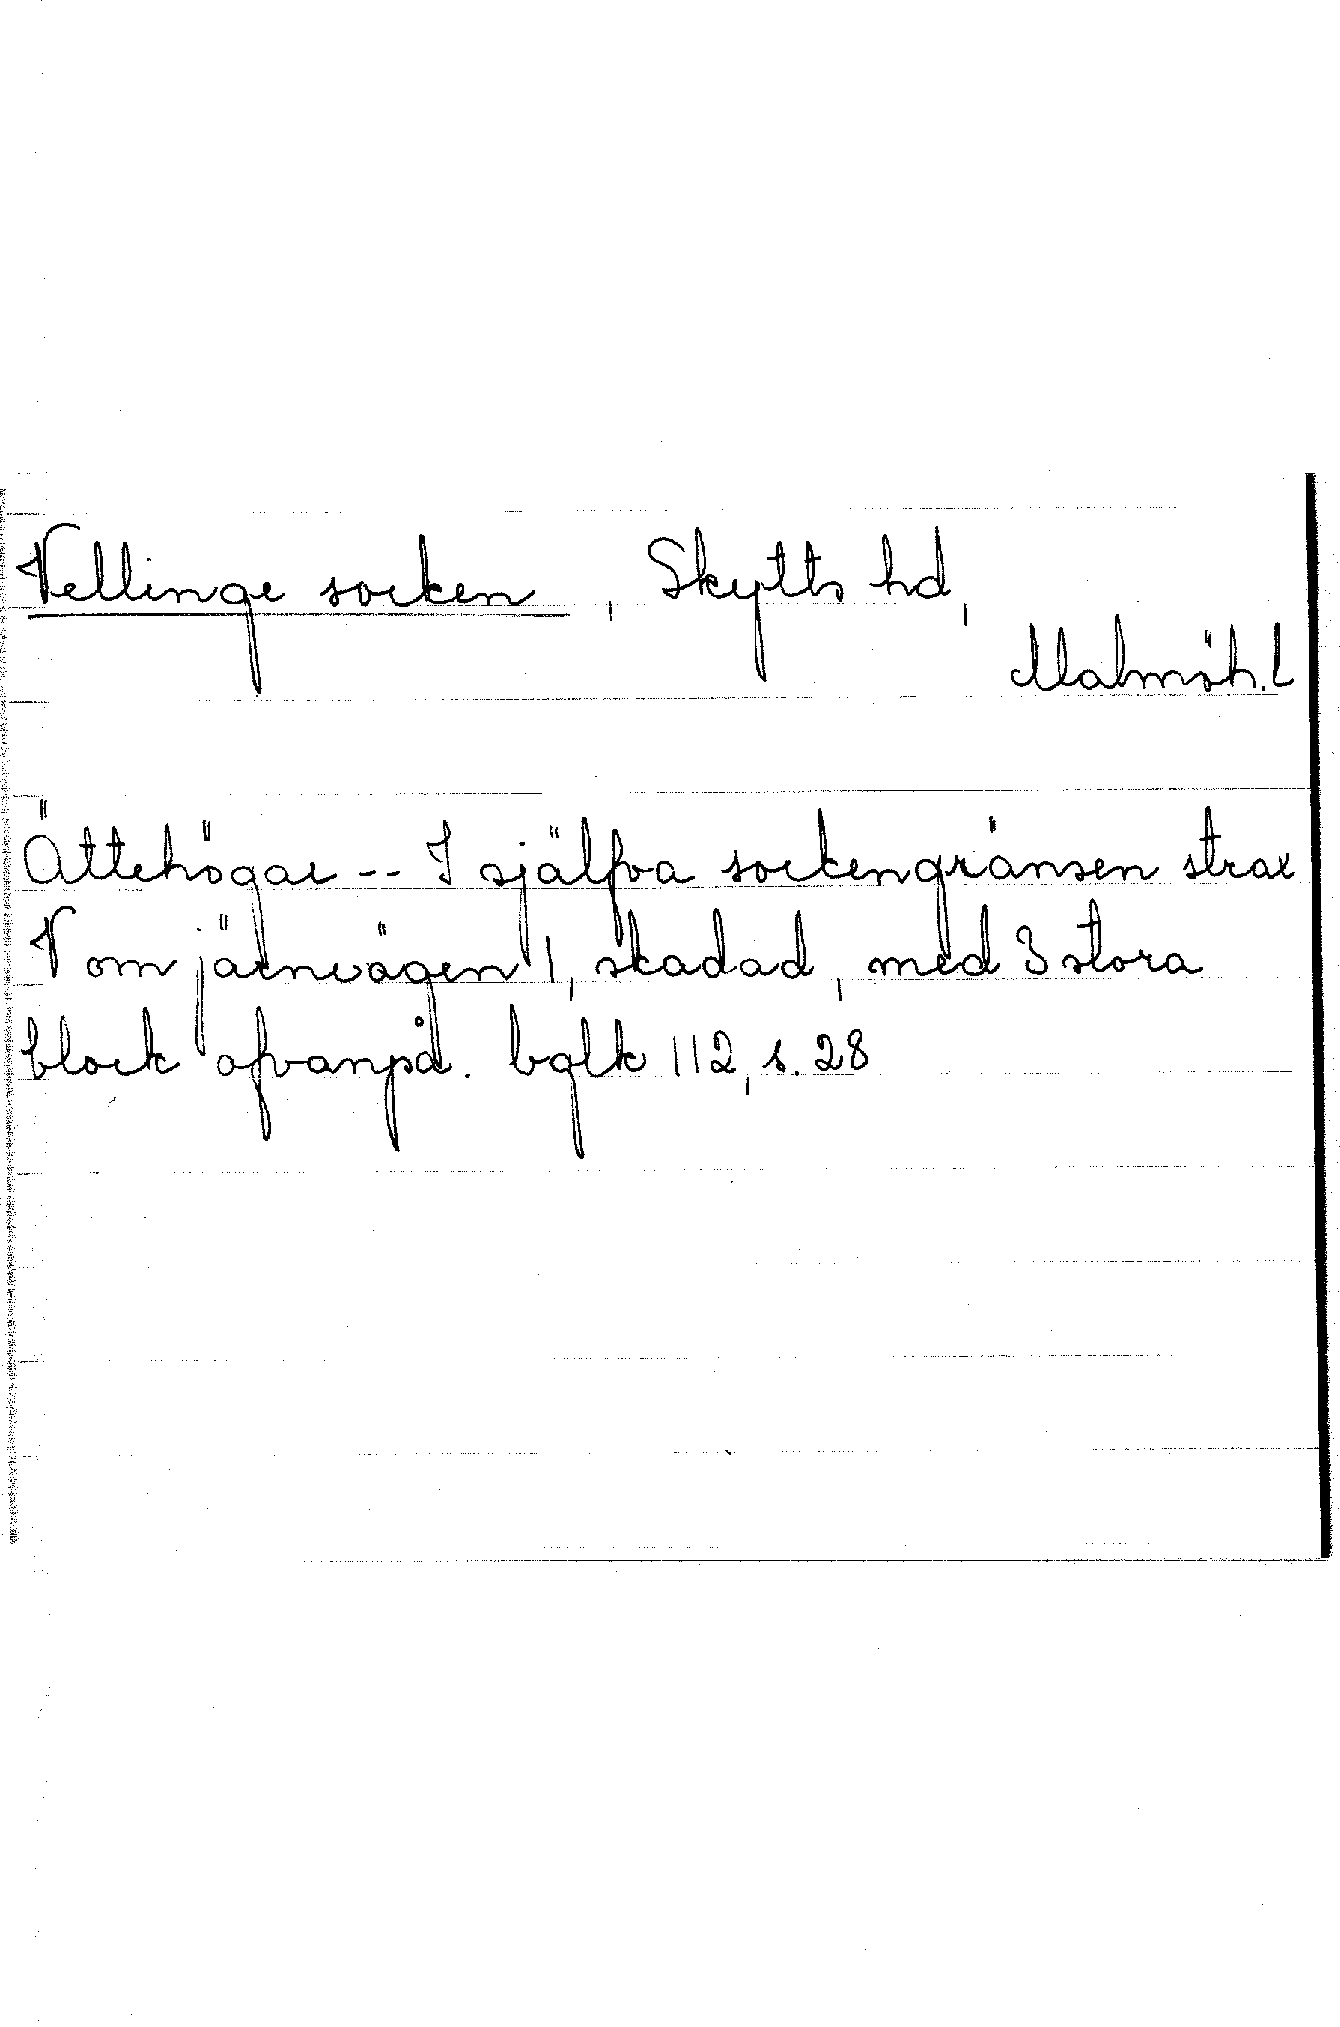 Vellinge socken, Skytts hd,
Malmöh. l
Ättehögar -- I själfva sockengränsen strax
V om järnvägen 1, skadad, med 3 stora
block ofvanpå. bglk 112, s. 28